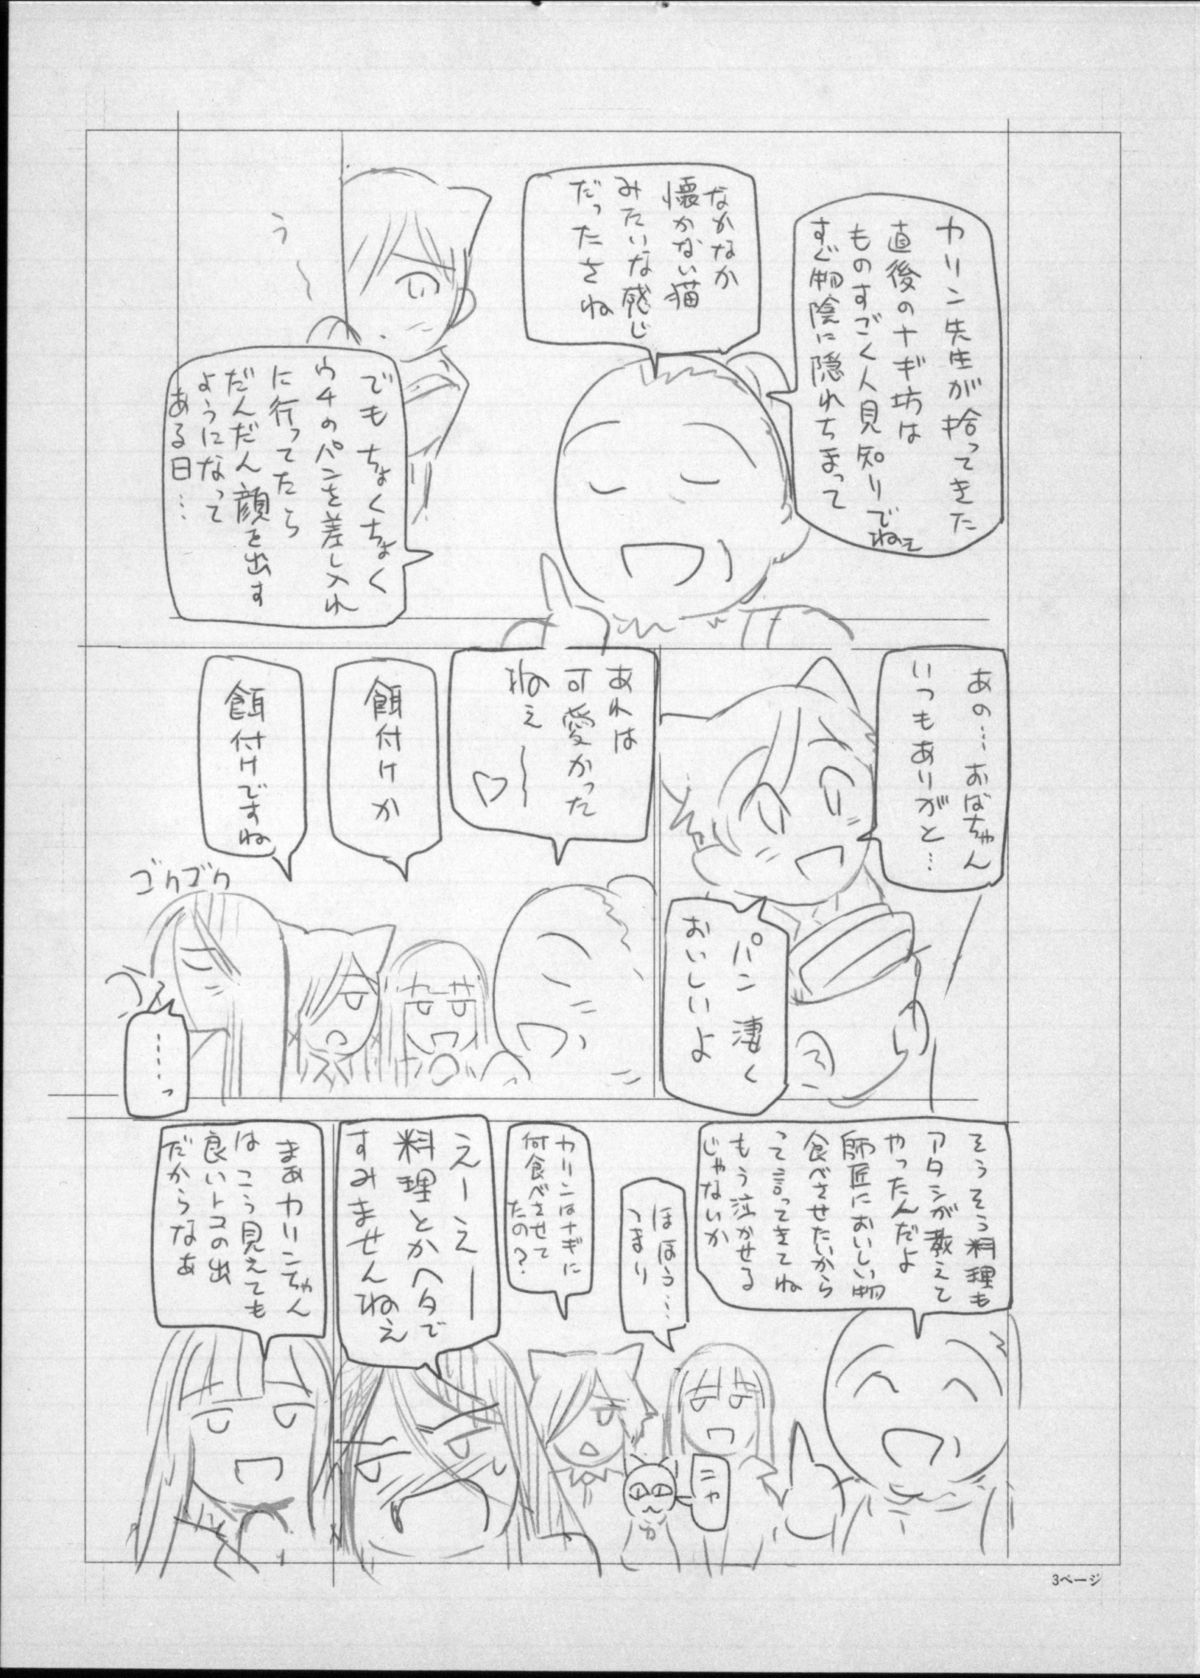 カリン先生が拾ってきた
直後のナギ坊は
ものすごく人見知りでねぇ
すぐ物陰に隠れちまって
なかなか
懐かない猫
みたいな感じ
だったさね
う〜
でもちょくちょく
ウチのパンを差し入れ
に行ってたら
だんだん顔を出す
ようになって
ある日…
あの…おばちゃん
いつもありがと…
パン凄く
おいしいよ
あれは
可愛かった
ねぇ〜♡
餌付けか
餌付けですね
ゴクゴク
……っ
そうそう料理も
アタシが教えて
やったんだよ
師匠においしい物
食べさせたいから
って言ってきてね
もう泣かせる
じゃないか
ほほう…
つまり
ニャ
カリンはナギに
何食べさせて
たの?
えーえー
料理とかヘタで
すみませんねえ
まあカリンちゃん
はこう見えても
良いトコの出
だからなあ
3ページ